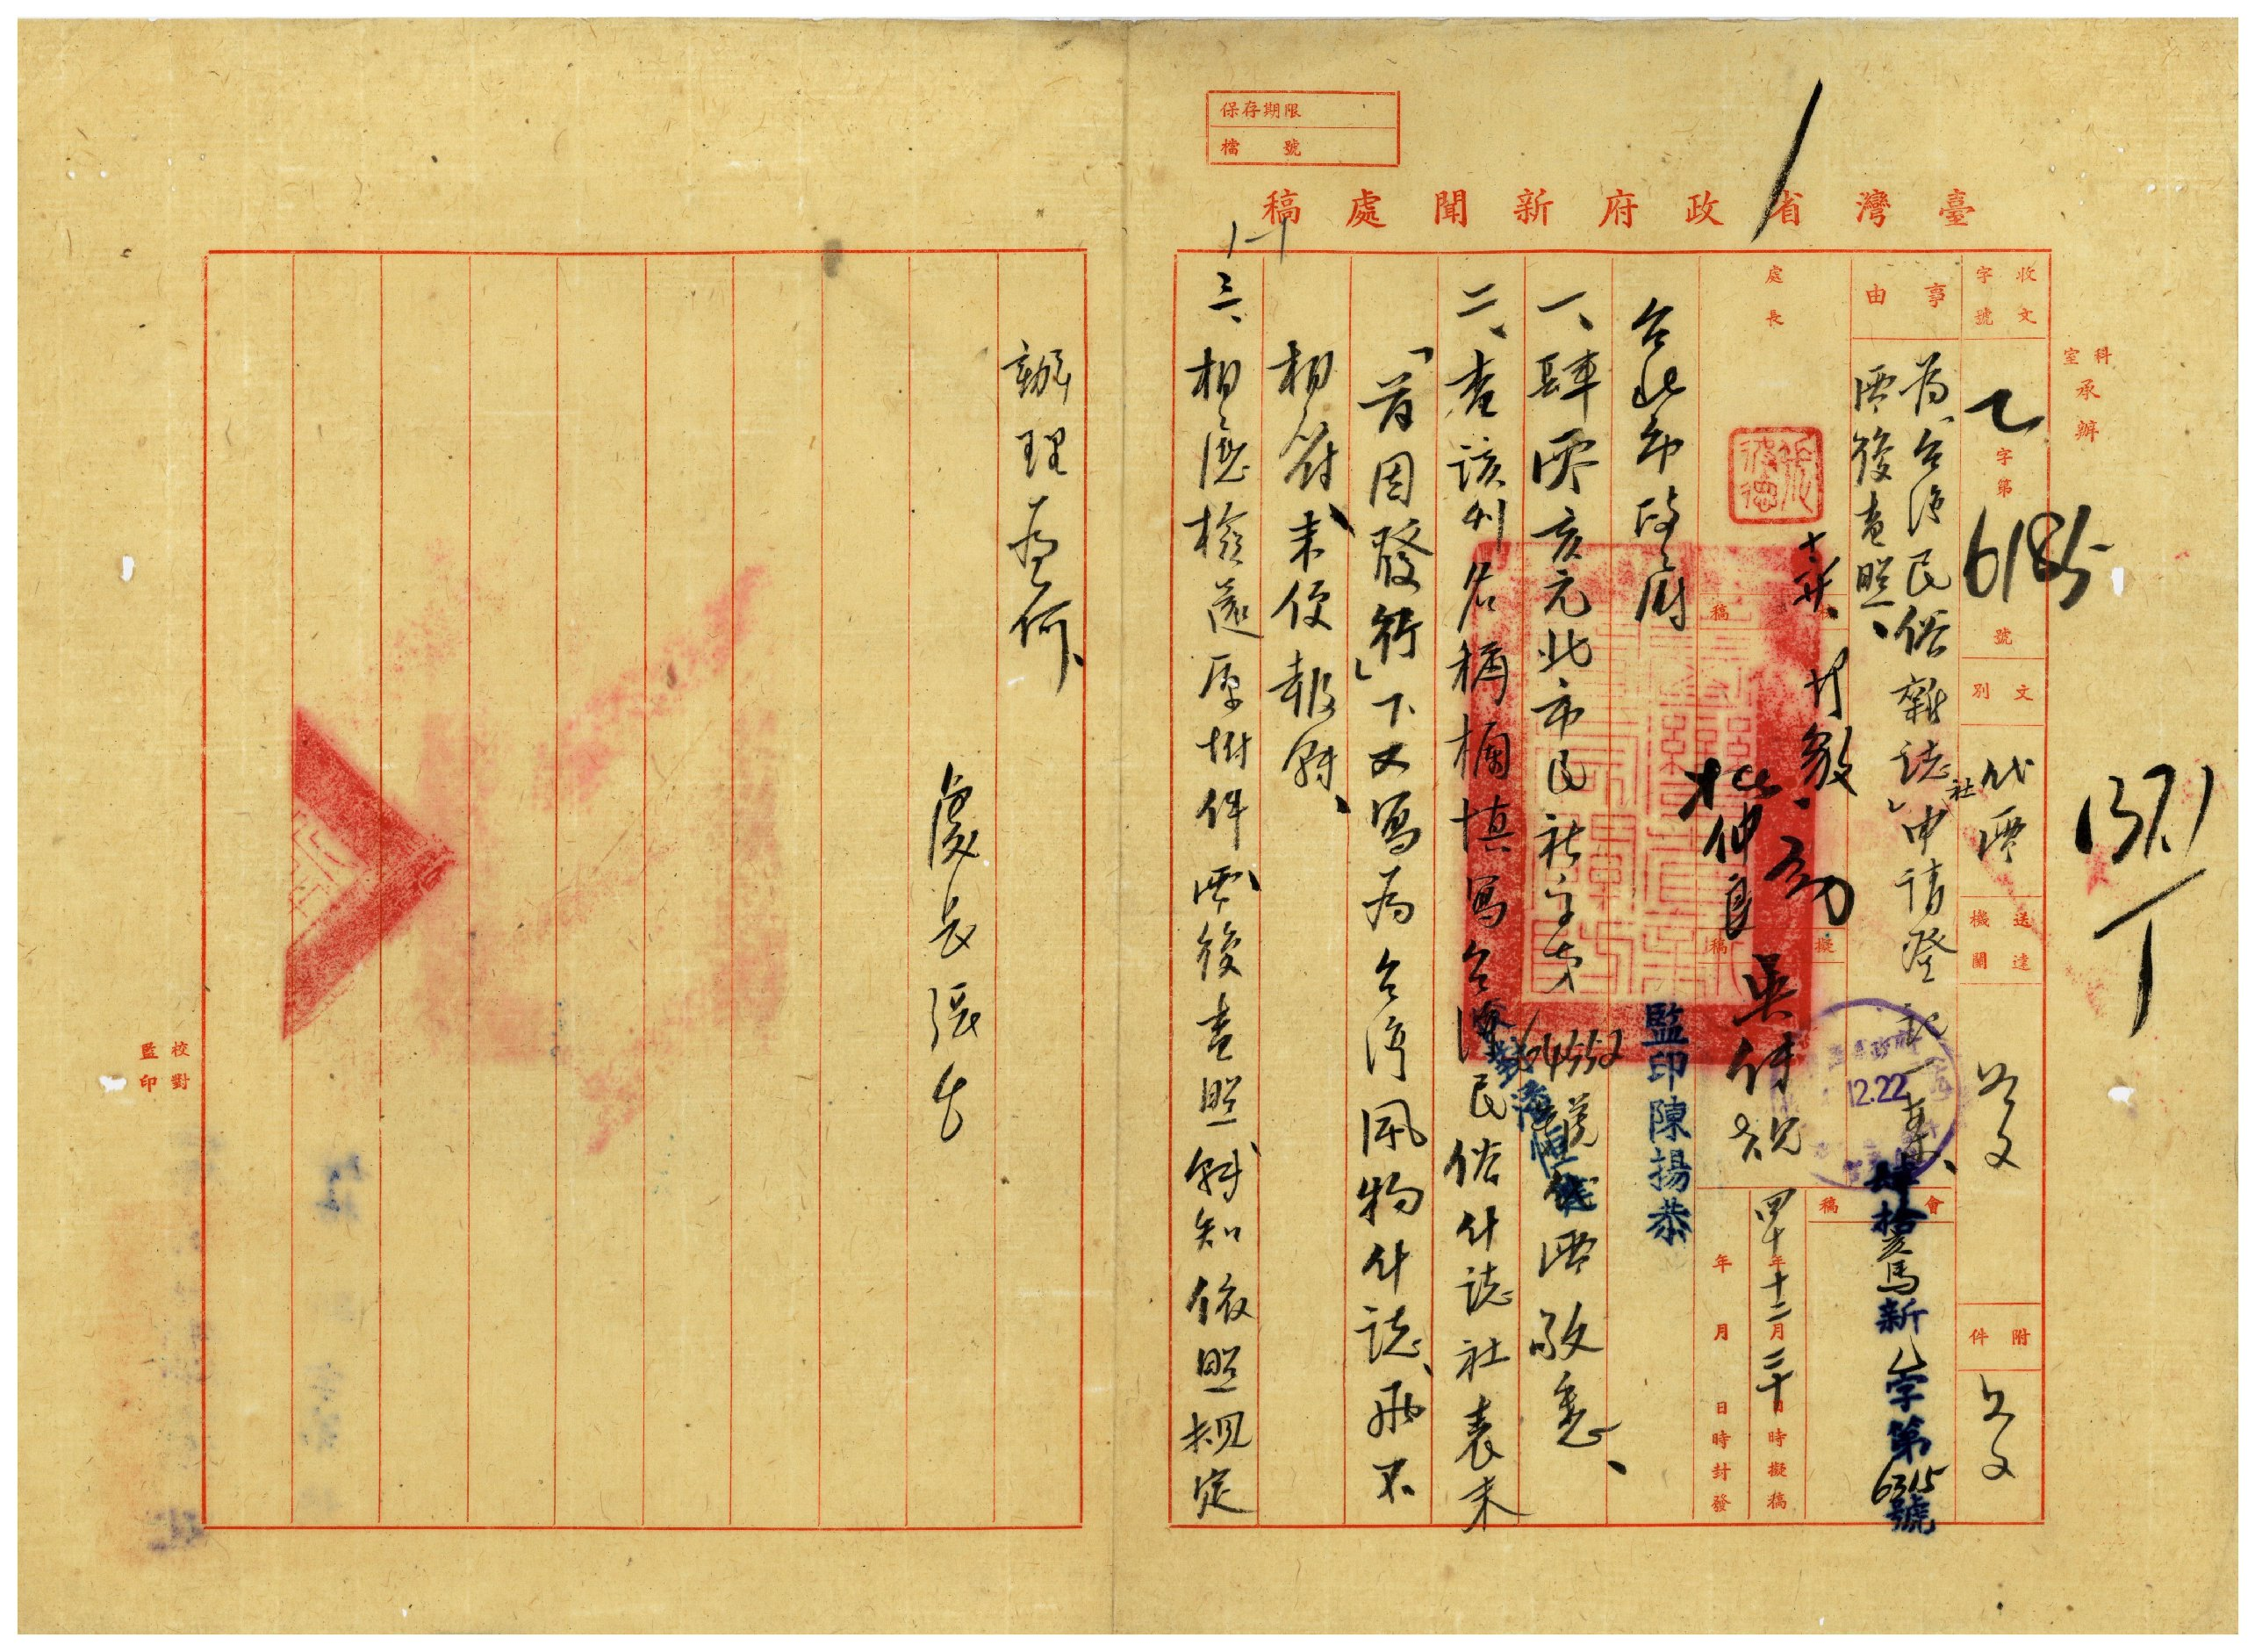 保存期限
檔號
臺灣省政府新聞處稿
科室承辦
收文字號
乙字第6185號
文別
代電
送達機關
附件
事由
為「台灣民俗雜誌社」申請登記一案、
電復查照、
肆拾 馬新 字第6315號
會稿
處長
擬稿
四十年十二月二十日時擬稿
年月日時封發
12.22
監印陳揚恭
台北市政府
一、肆 亥元北市民社字第04552號 電敬悉、
二、查該刊名稱欄填寫台灣民俗什誌社表末
「首因發行」下又寫為台灣風物什誌、 不
相符、未便報轉、
三、相應檢還原附件電復查照轉知依照規定
辦理為荷、
處長張
校對
監印
1371